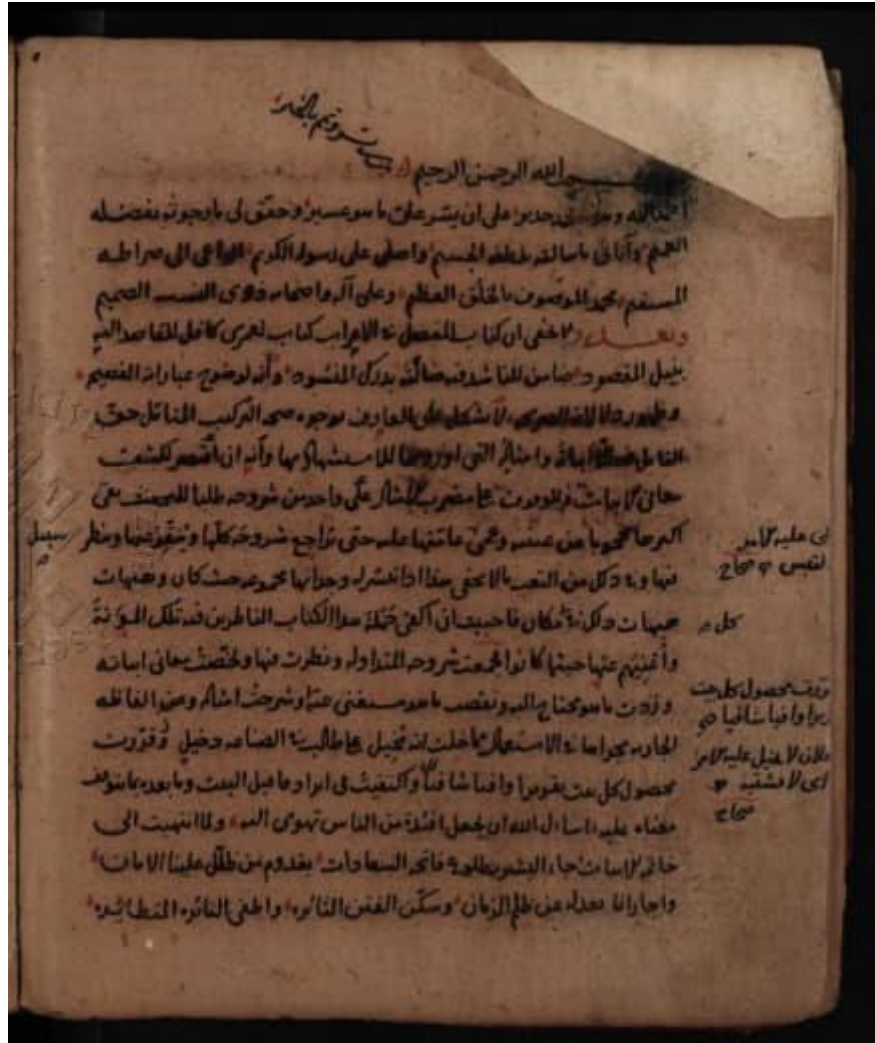 بسم الله الرحمن الرحيم
احمد الله على ان يسر على ما هو عسير وحقق لى ما رجوته بفضله
العميم وآتانى ما سالته بلطفه الجسيم واصلى على رسوله الكريم الداعى الى صراطه
المستقيم محمد الموصوف بالخلق العظيم وعلى آله واصحابه ذوى النسب الصميم
وبعد لا يخفى ان كتاب المفصل فى الاعراب كتاب لعمرى كافل المقاصد اليه
بنيل المقصود ضامن للناشد فيه ضالته بدرك المنشود وانه لوضوح عباراته الفصيحة
وظهور دلالاته لا يشكل على العارف بوجوه صحة التركيب المتأمل حق
التأمل ابياته وامثاله التى اوردها للاستشهاد بها وانه ان اقتصر لكشف
معانى الابيات على واحد من شروحه طلبا للبعض بقى
اكثرها محجوبا عن عينيه وعمى عامتها عليه حتى تراجع شروحه كلها وينقر عنها وينظر
فيها وفى ذلك من التعب ما لا يخفى هذا اذا تيسر له وجدانها مجموعة حيث كان وهيهات
هيهات ذلك فى مكان فاحببت ان اكفى حملة هذا الكتاب الناظرين فيه تلك المؤنة
وأغنيهم عنها حيثما كانوا فجمعت شروحه المتداولة ونظرت فيها ولخصت معانى ابياته
وزدت ما هو محتاج اليه ونقصت ما هو مستغنى عنه وشرحت امثاله وبعض الفاظه
الجارية مجراها فى الاستعمال مما خلت انه مخيل على طالب فى الصناعة دخيل وقررت
محصول كل بيت تقريرا وافيا شافيا واكتفيت فى ايراد ما قبل البيت وما بعده بما يتوقف
معناه عليه واسأل الله ان يجعل افئدة من الناس تهوى اليه ولما انتهيت الى
خاتمة الابيات جاء البشير بطلوع فاتحة السعادات بقدوم من ظلل علينا الامان
واجارنا بعدله عن ظلم الزمان وسكن الفتن الثائرة واطفى النائرة المتطائرة
سبيل
اى عليه الامر
لتبس صحاح
كل
قررت محصول كل بيت
تقريرا وافيا شافيا صح
فلان لا يخيل عليه الامر
اى لا يشتبه
صحاح